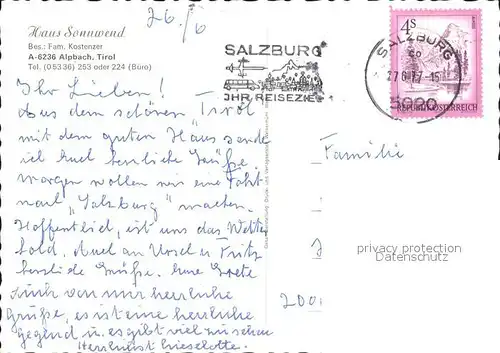 26./6
Haus Sonnwend
Bes.: Fam. Kostenzer
A-6236 Alpbach, Tirol
Tel. (0 53 36) 253 oder 224 (Büro)
SALZBURG
IHR REISEZIEL
4S
SALZBURG
27.6.77-15
5020
REPUBLIK ÖSTERREICH
Ihr Lieben!
Aus dem schönen Tirol
mit dem guten Haus sende
ich Euch herzliche Grüße
morgen wollen wir eine Fahrt
nach "Salzburg" machen.
Hoffentlich, ist uns das Wetter
hold. Auch an Ursel u. Fritz
herzliche Grüße. Eure Grete
Auch von mir herrliche
Grüße, es ist eine herrliche
gegend u. es gibt viel zu sehen
Herzlichst Lieselotte.
Familie
200
privacy protection
Datenschutz